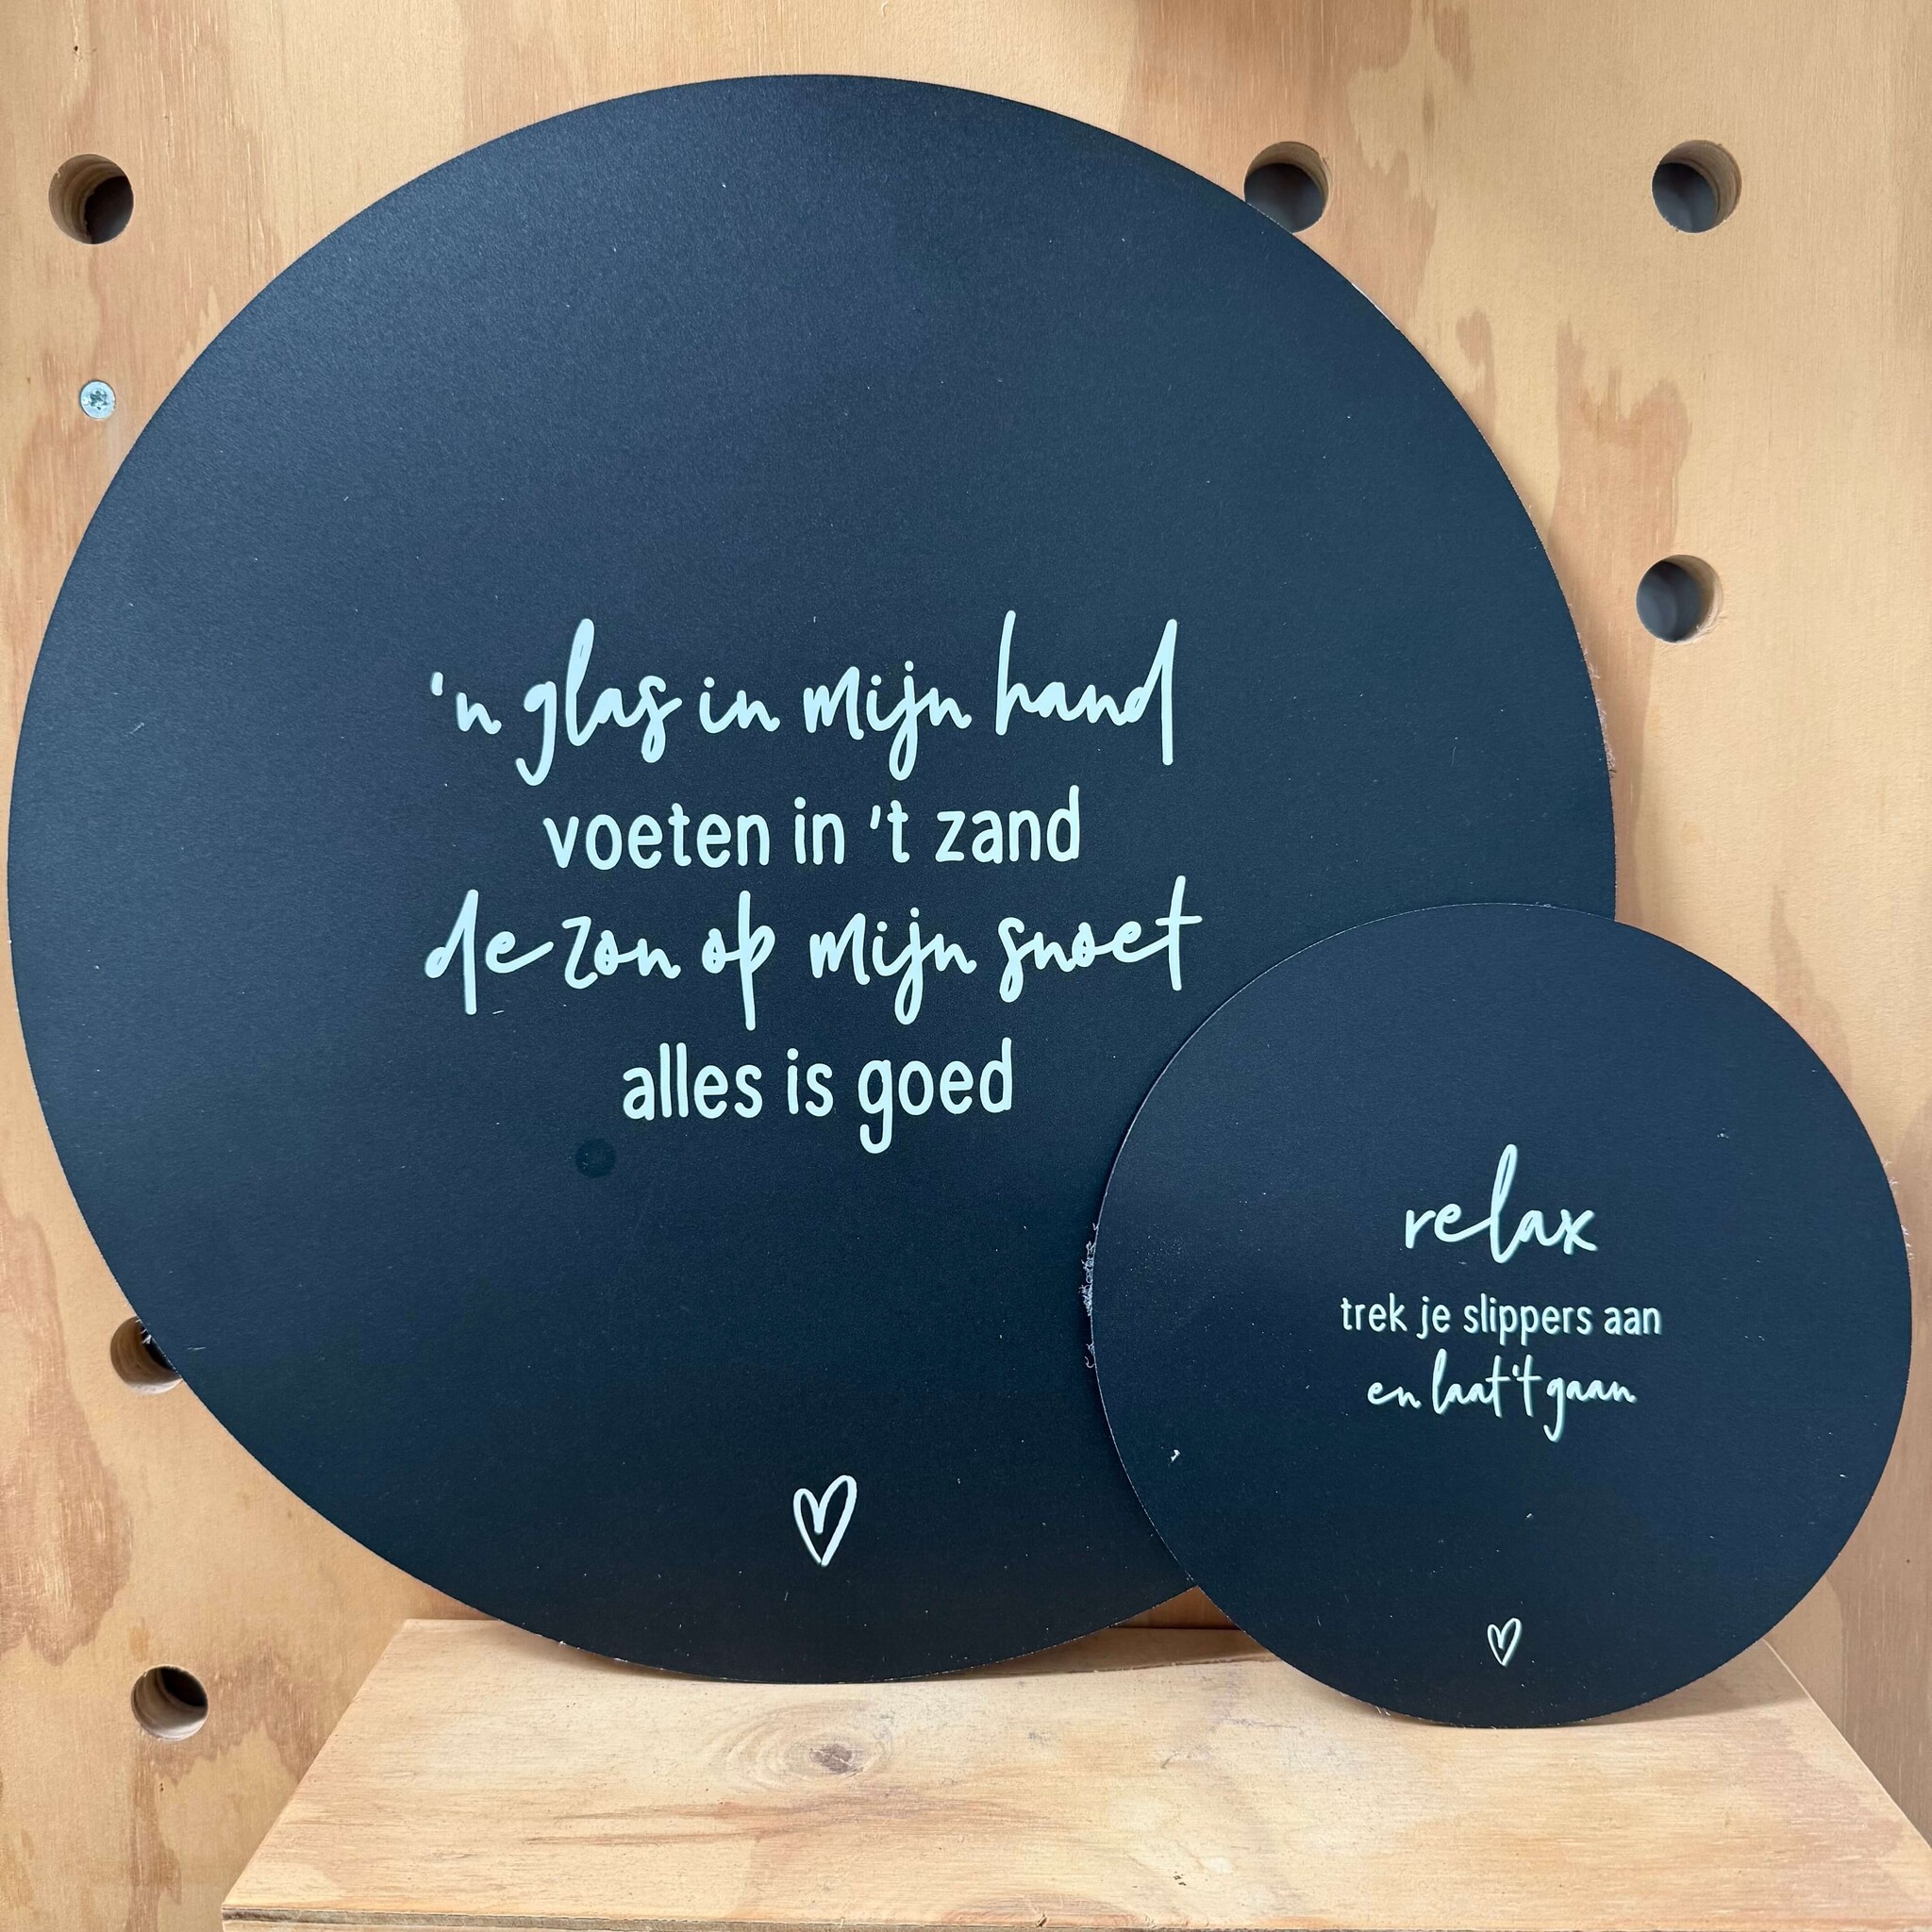 'n glas in mijn hand
voeten in 't zand
de zon op mijn snoet
alles is goed
relax
trek je slippers aan
en laat 't gaan